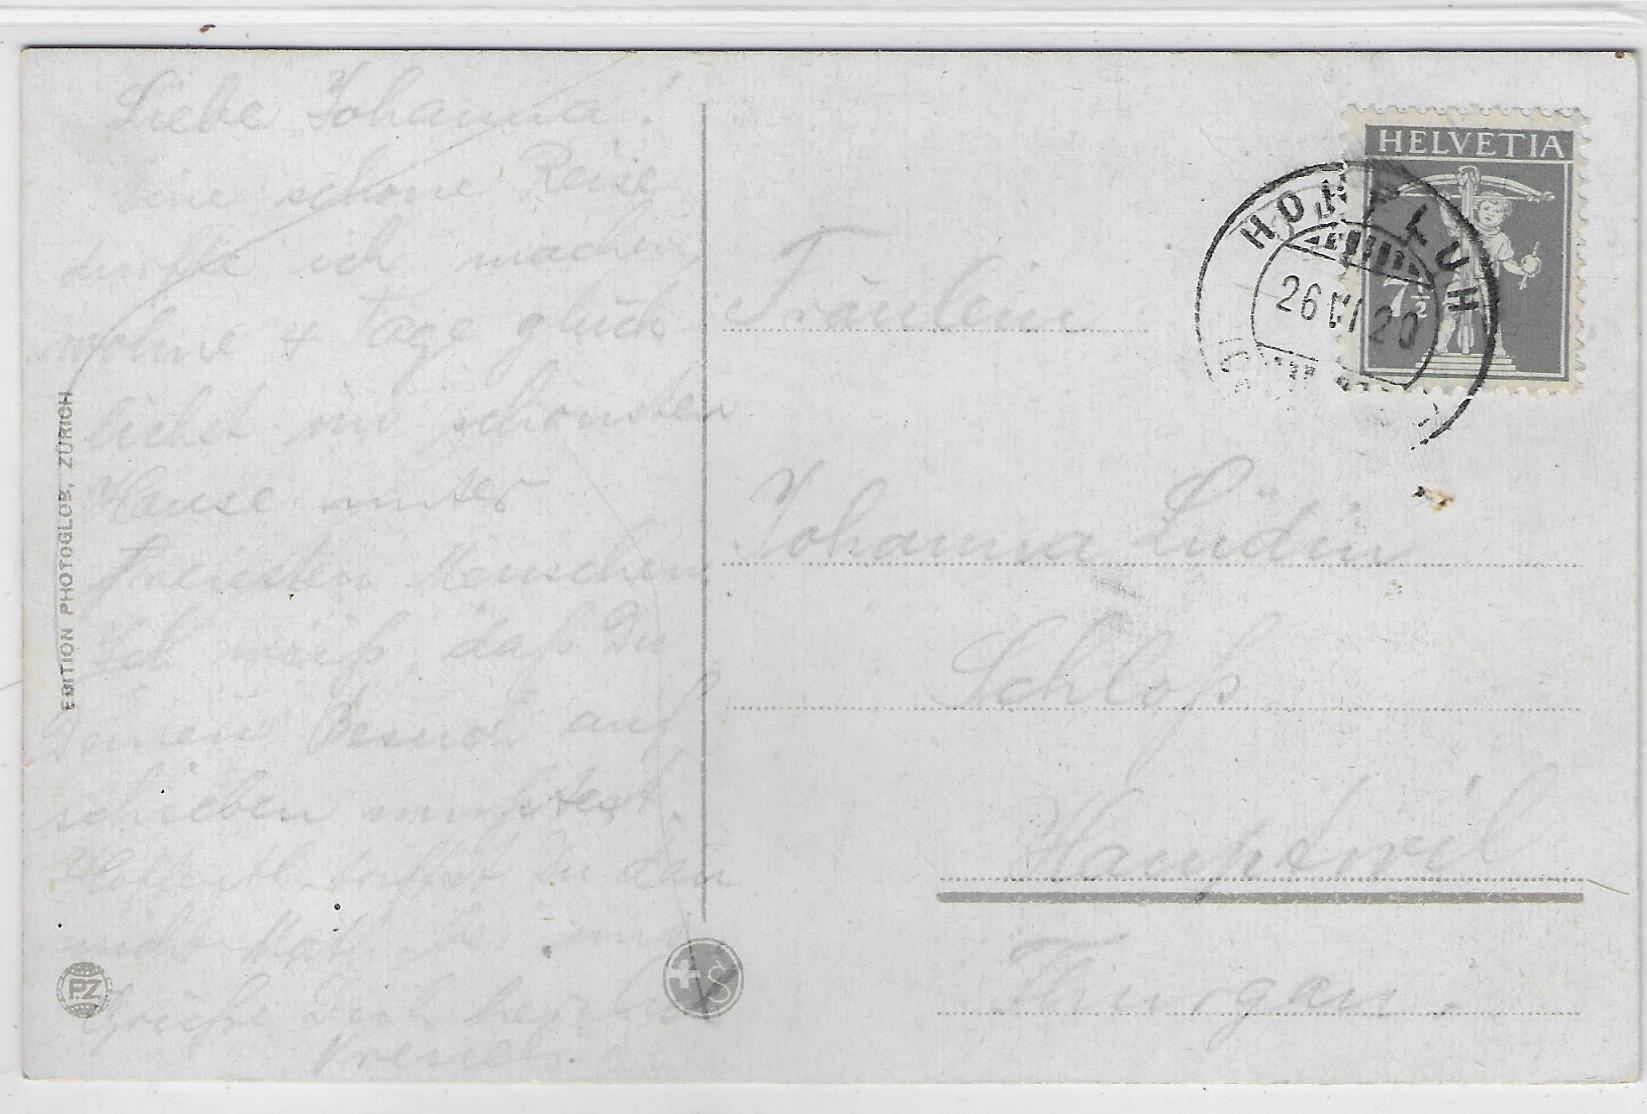 Liebe Johanna!
Eine schöne Reise
durfte ich machen,
wohne 4 Tage glück
lichst im schönsten
Hause unter
freiesten Menschen
Ich weiß, daß Du
Deinen Besuch auf
schieben mußtest.
Hoffentl. triffst Du dan
grüße Dich herzlich
EDITION PHOTOGLOB, ZÜRICH
PZ
S
HELVETIA
7½
HOHFLUH
26 VI 20
Fräulein
Johanna Lüdin
Schloß
Hauptwil
Thurgau.